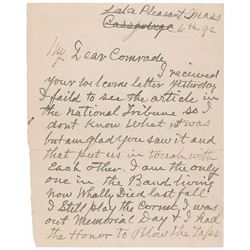 Lake Pleasant, Mass
6th 92
My Dear Comrade
I received
your welcome letter yesterday
I faild to see the article in
the National Tribune so I
dont Know What it was
but am glad you saw it and
that put us in touch with
each other. I am the only
one in the Band living
now Whally Died last fall!
I Still play the Cornet, I was
out Memorial Day & I had
the Honor to Blow the Taps